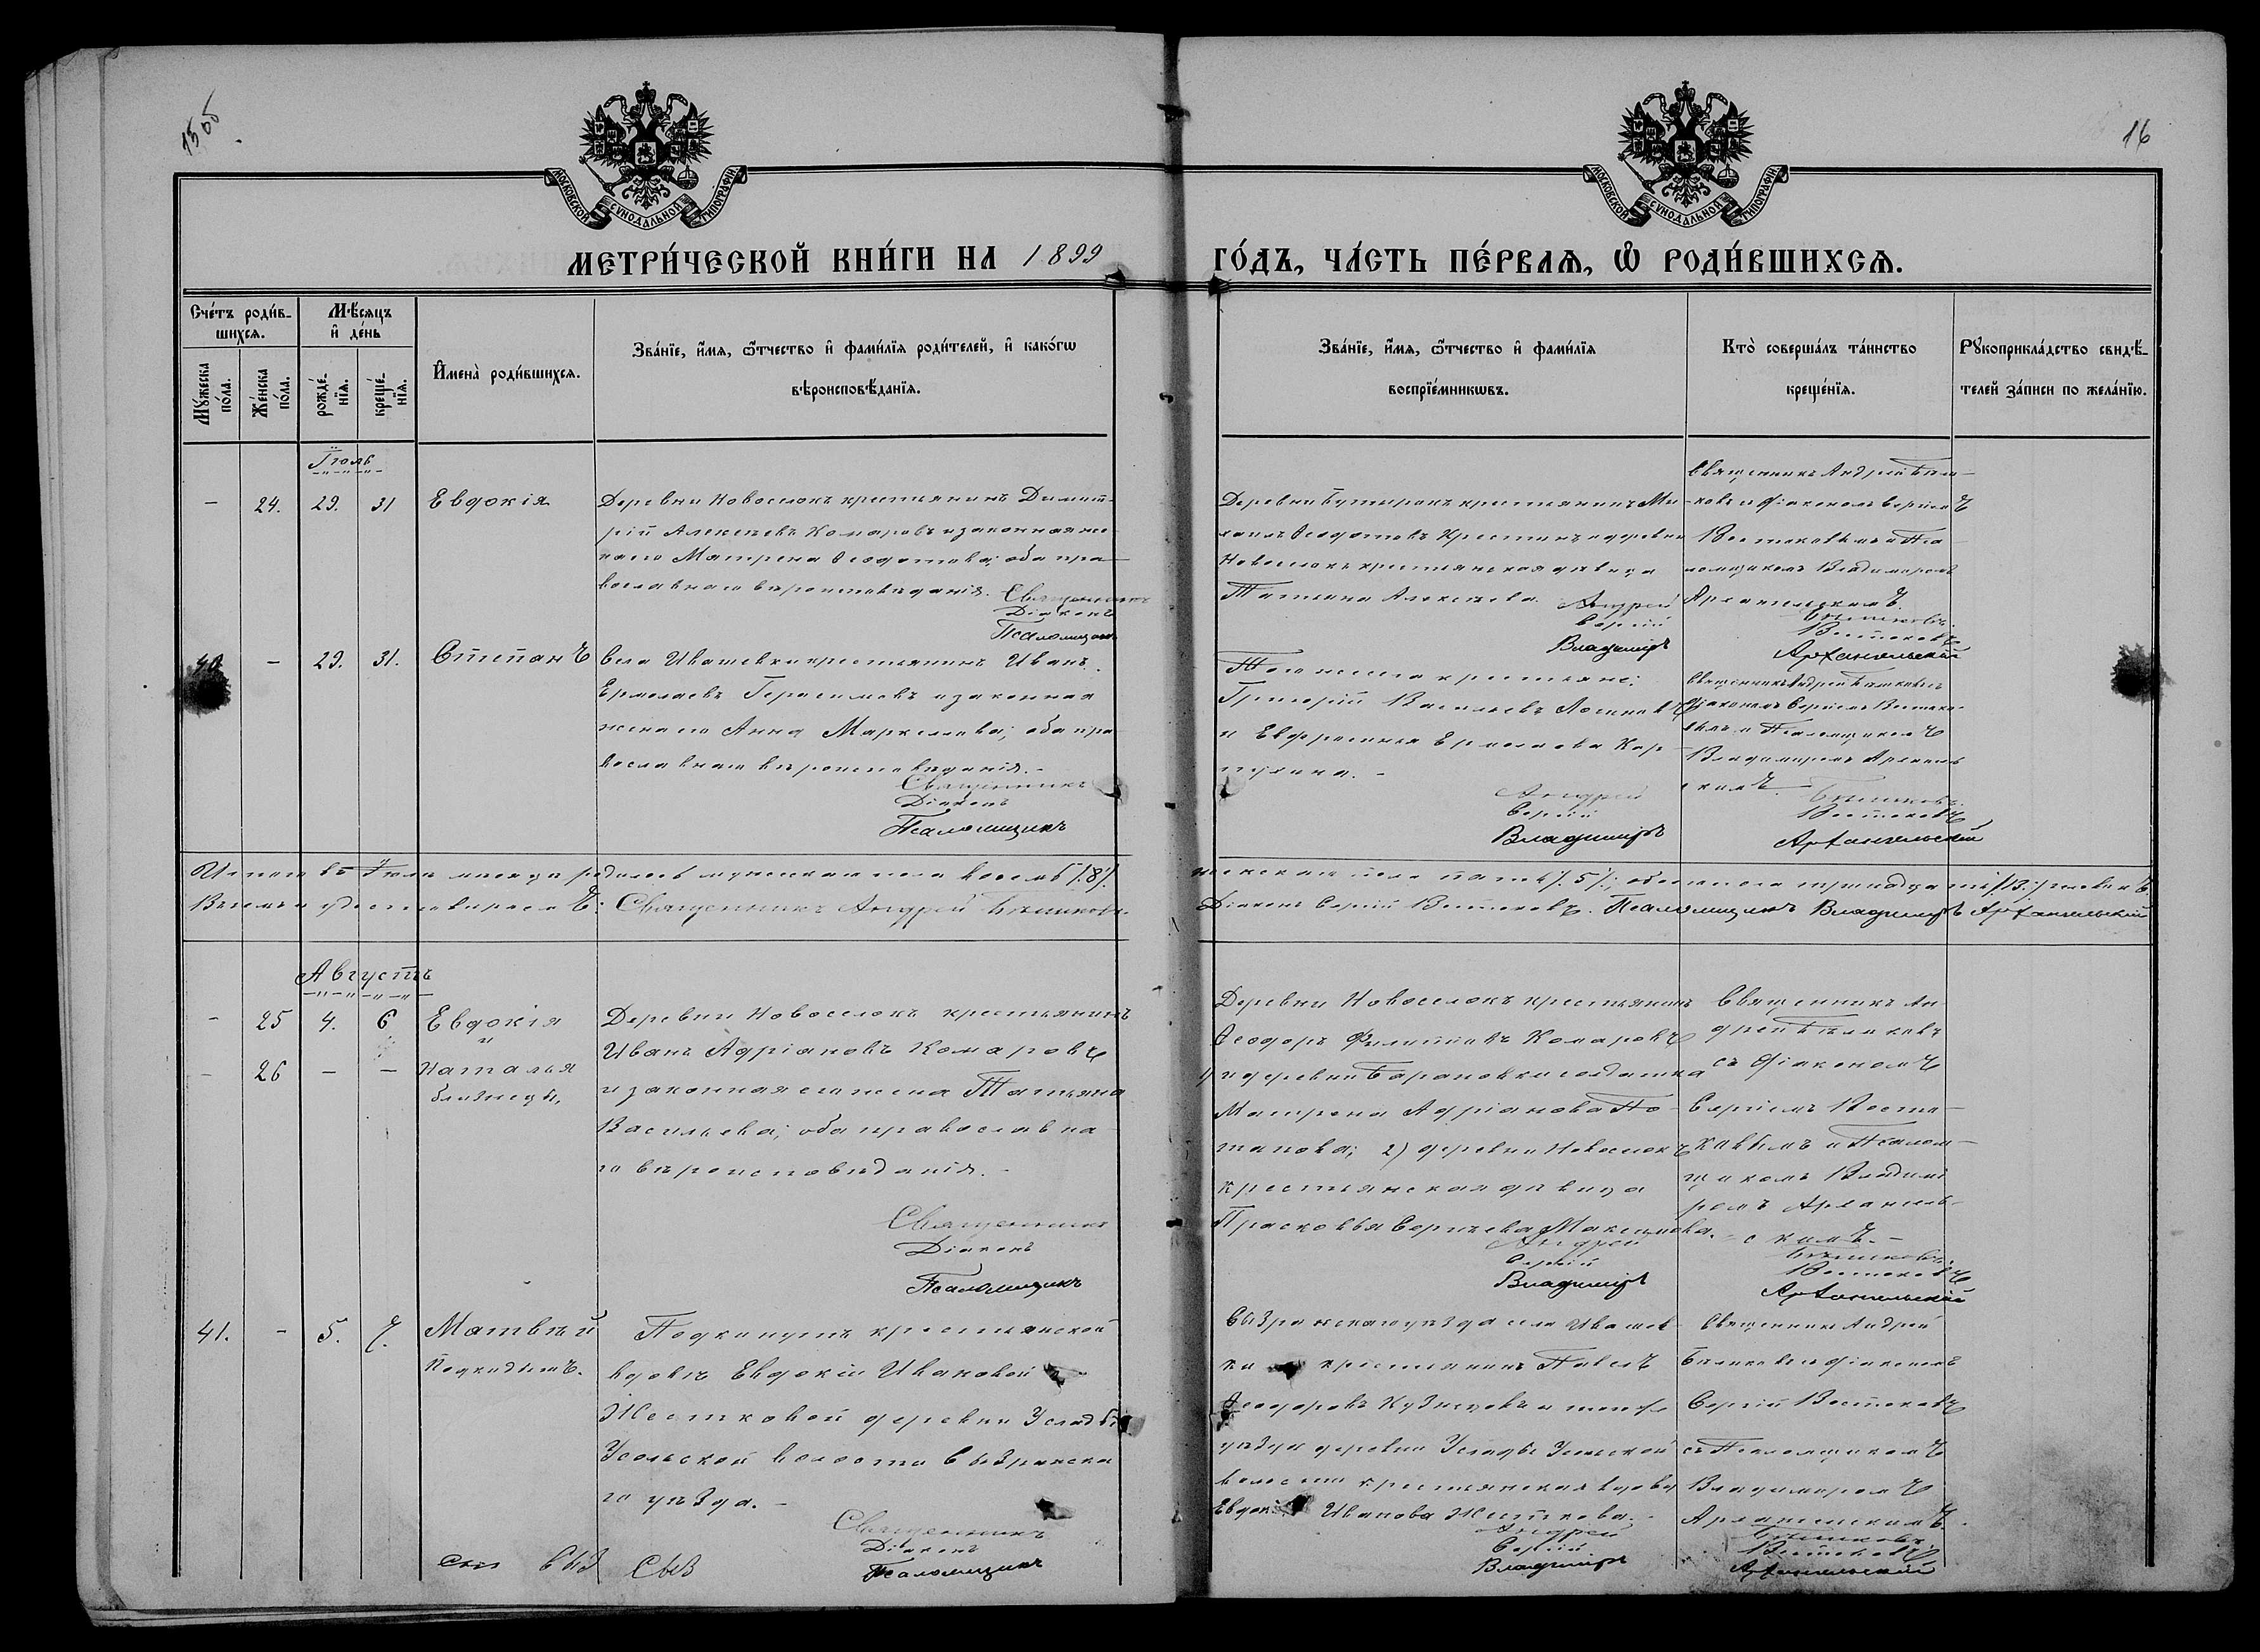 15об
16
МОСКОВСКОЙ СУНОДАЛЬНОЙ ТИПОГРАФІИ
МОСКОВСКОЙ СУНОДАЛЬНОЙ ТИПОГРАФІИ
МЕТРИ́ЧЕСКОЙ КНИ́ГИ НА 1899 ГО́ДЪ, ЧА́СТЬ ПЕ́РВАѦ, Ѡ҆ РОДИ́ВШИХСѦ.
Сче́тъ роди́в-
шихсѧ.
Мѣ́сѧцъ
и҆ де́нь
Мꙋ́жеска
по́ла.
Же́нска
по́ла.
рожде́-
нїѧ.
креще́-
нїѧ.
И҆мена̀ роди́вшихсѧ.
Зва́нїе, и҆́мѧ, ѻ҆́тчество и҆ фами́лїѧ роди́телей, и҆ како́гѡ
вѣроисповѣ́данїѧ.
Зва́нїе, и҆́мѧ, ѻ҆́тчество и҆ фами́лїѧ
воспрїе́мникѡвъ.
Кто̀ соверша́лъ та́инство
креще́нїѧ.
Рꙋкоприкла́дство свидѣ́-
телей за́писи по жела́нїю.
Іюль
- 24. 29. 31 Евдокія
Деревни Новоселокъ крестьянинъ Димит-
рій Алексѣевъ Комаровъ и законная же-
на его Матрена Ѳеодотова; оба пра-
вославнаго вѣроисповѣданія.
Священникъ
Діаконъ
Псаломщикъ
Деревни Бутырокъ крестьянинъ Ми-
хаилъ Ѳеодотовъ и деревни
Новоселокъ крестьянская дѣвица
Татьяна Алексѣева.
Андрей
Сергій
Владиміръ
Священникъ Андрей Бѣли-
ковъ съ діакономъ Сергіемъ
Востоковымъ и Пса-
ломщикомъ Владиміромъ
Архангельскимъ.
Бѣликовъ.
Востоковъ
Архангельскій
40 - 29. 31. Стефанъ
Села Ивашевки крестьянинъ Иванъ
Ермолаевъ Герасимовъ и законная
жена его Анна Маркеллова; оба пра-
вославнаго вѣроисповѣданія.-
Священникъ
Діаконъ
Псаломщикъ
Того же села крестьяне:
Григорій Васильевъ
и Евфросинія Ермолаева Кар-
пухина.-
Андрей
Сергій
Владиміръ
Священникъ Андрей Бѣликовъ съ
діакономъ Сергіемъ Востоко-
вымъ и Псаломщикомъ
Владиміромъ Архангель-
скимъ.
Бѣликовъ.
Востоковъ
Архангельскій
Итого въ Іюлѣ мѣсяцѣ родилось мужескаго пола восемь /8/. женскаго пола пять /.5/; обоего пола тринадцать /13/ человѣкъ
Въ чемъ и удостовѣряемъ: Священникъ Андрей Бѣликовъ. Діаконъ Сергій Востоковъ. Псаломщикъ Владиміръ Архангельскій
Августъ
- 25 4. 6 Евдокія
и
- 26 - - Наталья
близнецы,
Деревни Новоселокъ крестьянинъ
Иванъ Адріановъ Комаровъ
и законная его жена Татьяна
Васильева; оба православна-
го вѣроисповѣданія.-
Священникъ
Діаконъ
Псаломщикъ
Деревни Новоселокъ крестьянинъ
Ѳеодоръ Филипповъ Комаровъ
и деревни Барановки солдатка
Матрена Адріанова По-
тапова; 2) деревни Новоселокъ
крестьянская дѣвица
Прасковья Сергѣева Максимова.
Андрей
Сергій
Владиміръ
Священникъ Ан-
дрей Бѣликовъ
съ діакономъ
Сергіемъ Восто-
ковымъ и Псалом-
щикомъ Владимі-
ромъ Архангель-
скимъ.-
Бѣликовъ.
Востоковъ
Архангельскій
41. - 5. 7. Матвѣй
Подкидышъ.
Подкинутъ крестьянской
вдовѣ Евдокіи Ивановой
Жестковой деревни Усладь
Усольской волости Сызранска-
го уѣзда.-
Священникъ
Діаконъ
Псаломщикъ
Сызранскаго уѣзда села Ивашев-
ки крестьянинъ Павелъ
Ѳеодоровъ Кузнецовъ и того же
уѣзда деревни Услады Усольской
волости крестьянская вдова
Евдокія Иванова Жесткова.-
Андрей
Сергій
Владиміръ
Священникъ Андрей
Бѣликовъ съ діакономъ
Сергій Востоковъ
съ Псаломщикомъ
Владиміромъ
Архангельскимъ.
Бѣликовъ.
Востоковъ
Архангельскій